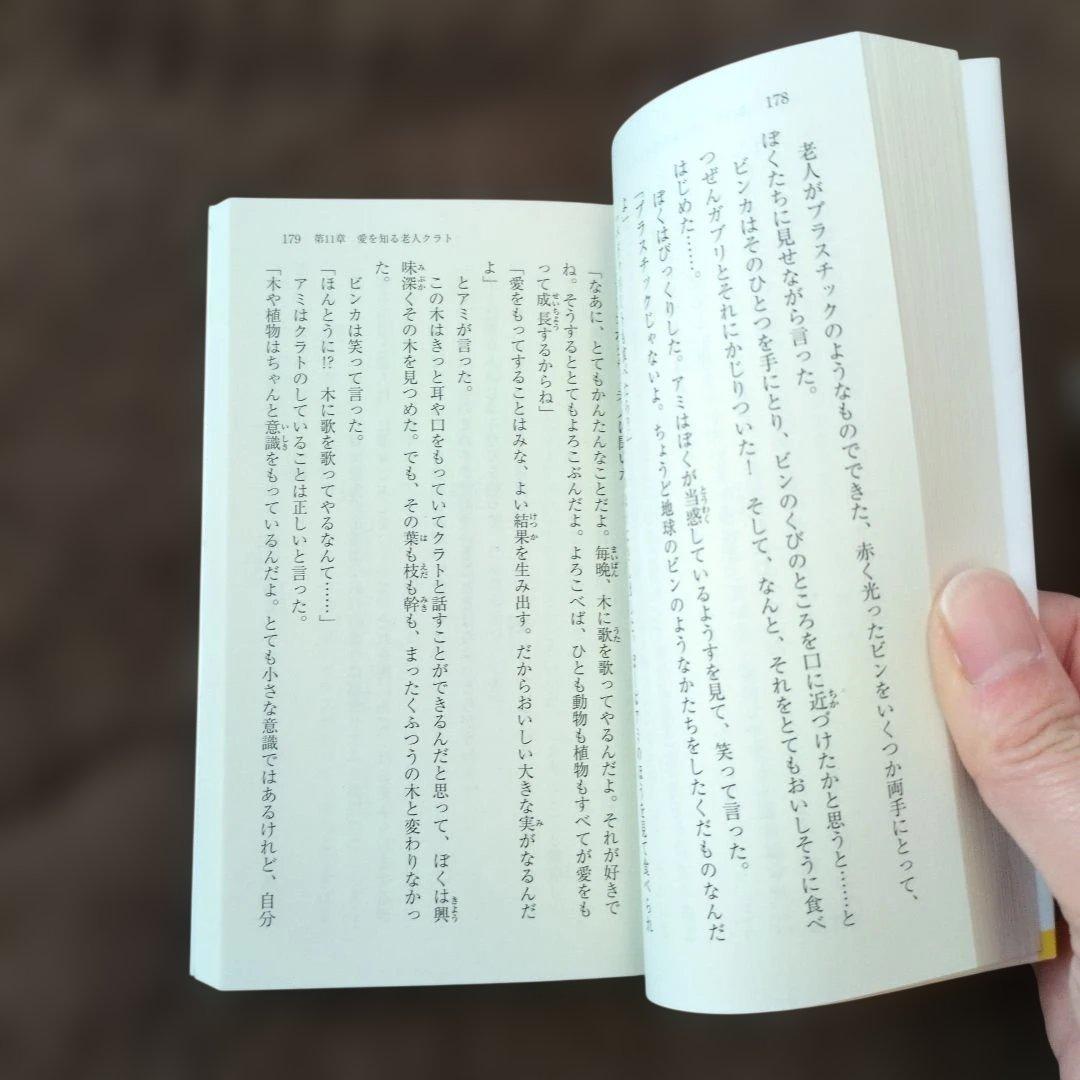 178
老人がプラスチックのようなものでできた、赤く光ったビンをいくつか両手にとって、
ぼくたちに見せながら言った。
ビンカはそのひとつを手にとり、ビンのくびのところを口に近づけたかと思うと……と
つぜんガブリとそれにかじりついた！　そして、なんと、それをとてもおいしそうに食べ
はじめた……。
ぼくはびっくりした。アミはぼくが当惑しているようすを見て、笑って言った。
「プラスチックじゃないよ。ちょうど地球のビンのようなかたちをしたくだものなんだ
よ」
179　第11章　愛を知る老人クラト
「なあに、とてもかんたんなことだよ。毎晩、木に歌を歌ってやるんだよ。それが好きで
ね。そうするととてもよろこぶんだよ。よろこべば、ひとも動物も植物もすべてが愛をも
って成長するからね」
「愛をもってすることはみな、よい結果を生み出す。だからおいしい大きな実がなるんだ
よ」
とアミが言った。
この木はきっと耳や口をもっていてクラトと話すことができるんだと思って、ぼくは興
味深くその木を見つめた。でも、その葉も枝も幹も、まったくふつうの木と変わりなかっ
た。
ビンカは笑って言った。
「ほんとうに!?　木に歌を歌ってやるなんて……」
アミはクラトのしていることは正しいと言った。
「木や植物はちゃんと意識をもっているんだよ。とても小さな意識ではあるけれど、自分